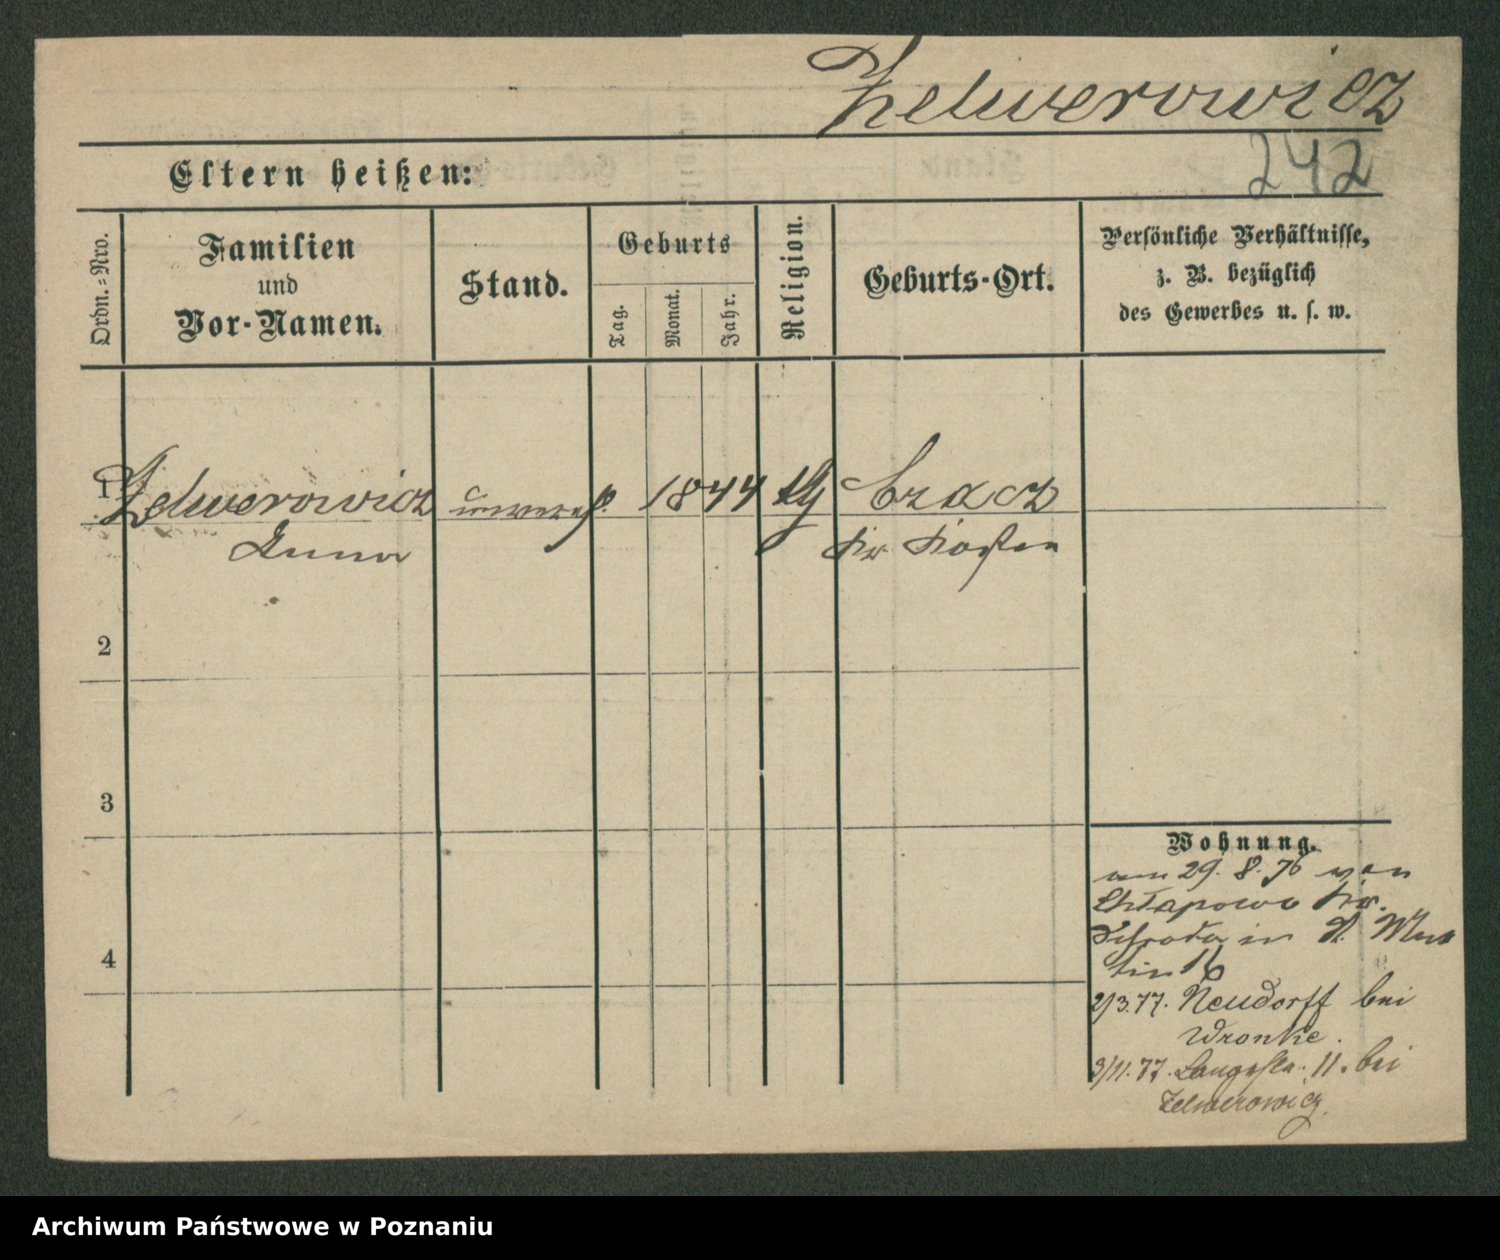 Zelwerowicz
242
Eltern heißen:
Ordn.-Nro.
Familien
und
Vor-Namen.
Stand.
Geburts
Tag.
Monat.
Jahr.
Religion.
Geburts-Ort.
Persönliche Verhältnisse,
z. B. bezüglich
des Gewerbes u. s. w.
1
Zelwerowicz
Anna
unvereh.
1844
Czacz
Kr Kosten
2
3
4
Wohnung.
am 29. 8. 76 von
Chłapowo Kr.
Schroda in St. Mar
tin 16
2/3.77. Neudorff bei
Wronke.
3/11.77. Langestr. 11. bei
Zelwerowicz.
Archiwum Państwowe w Poznaniu